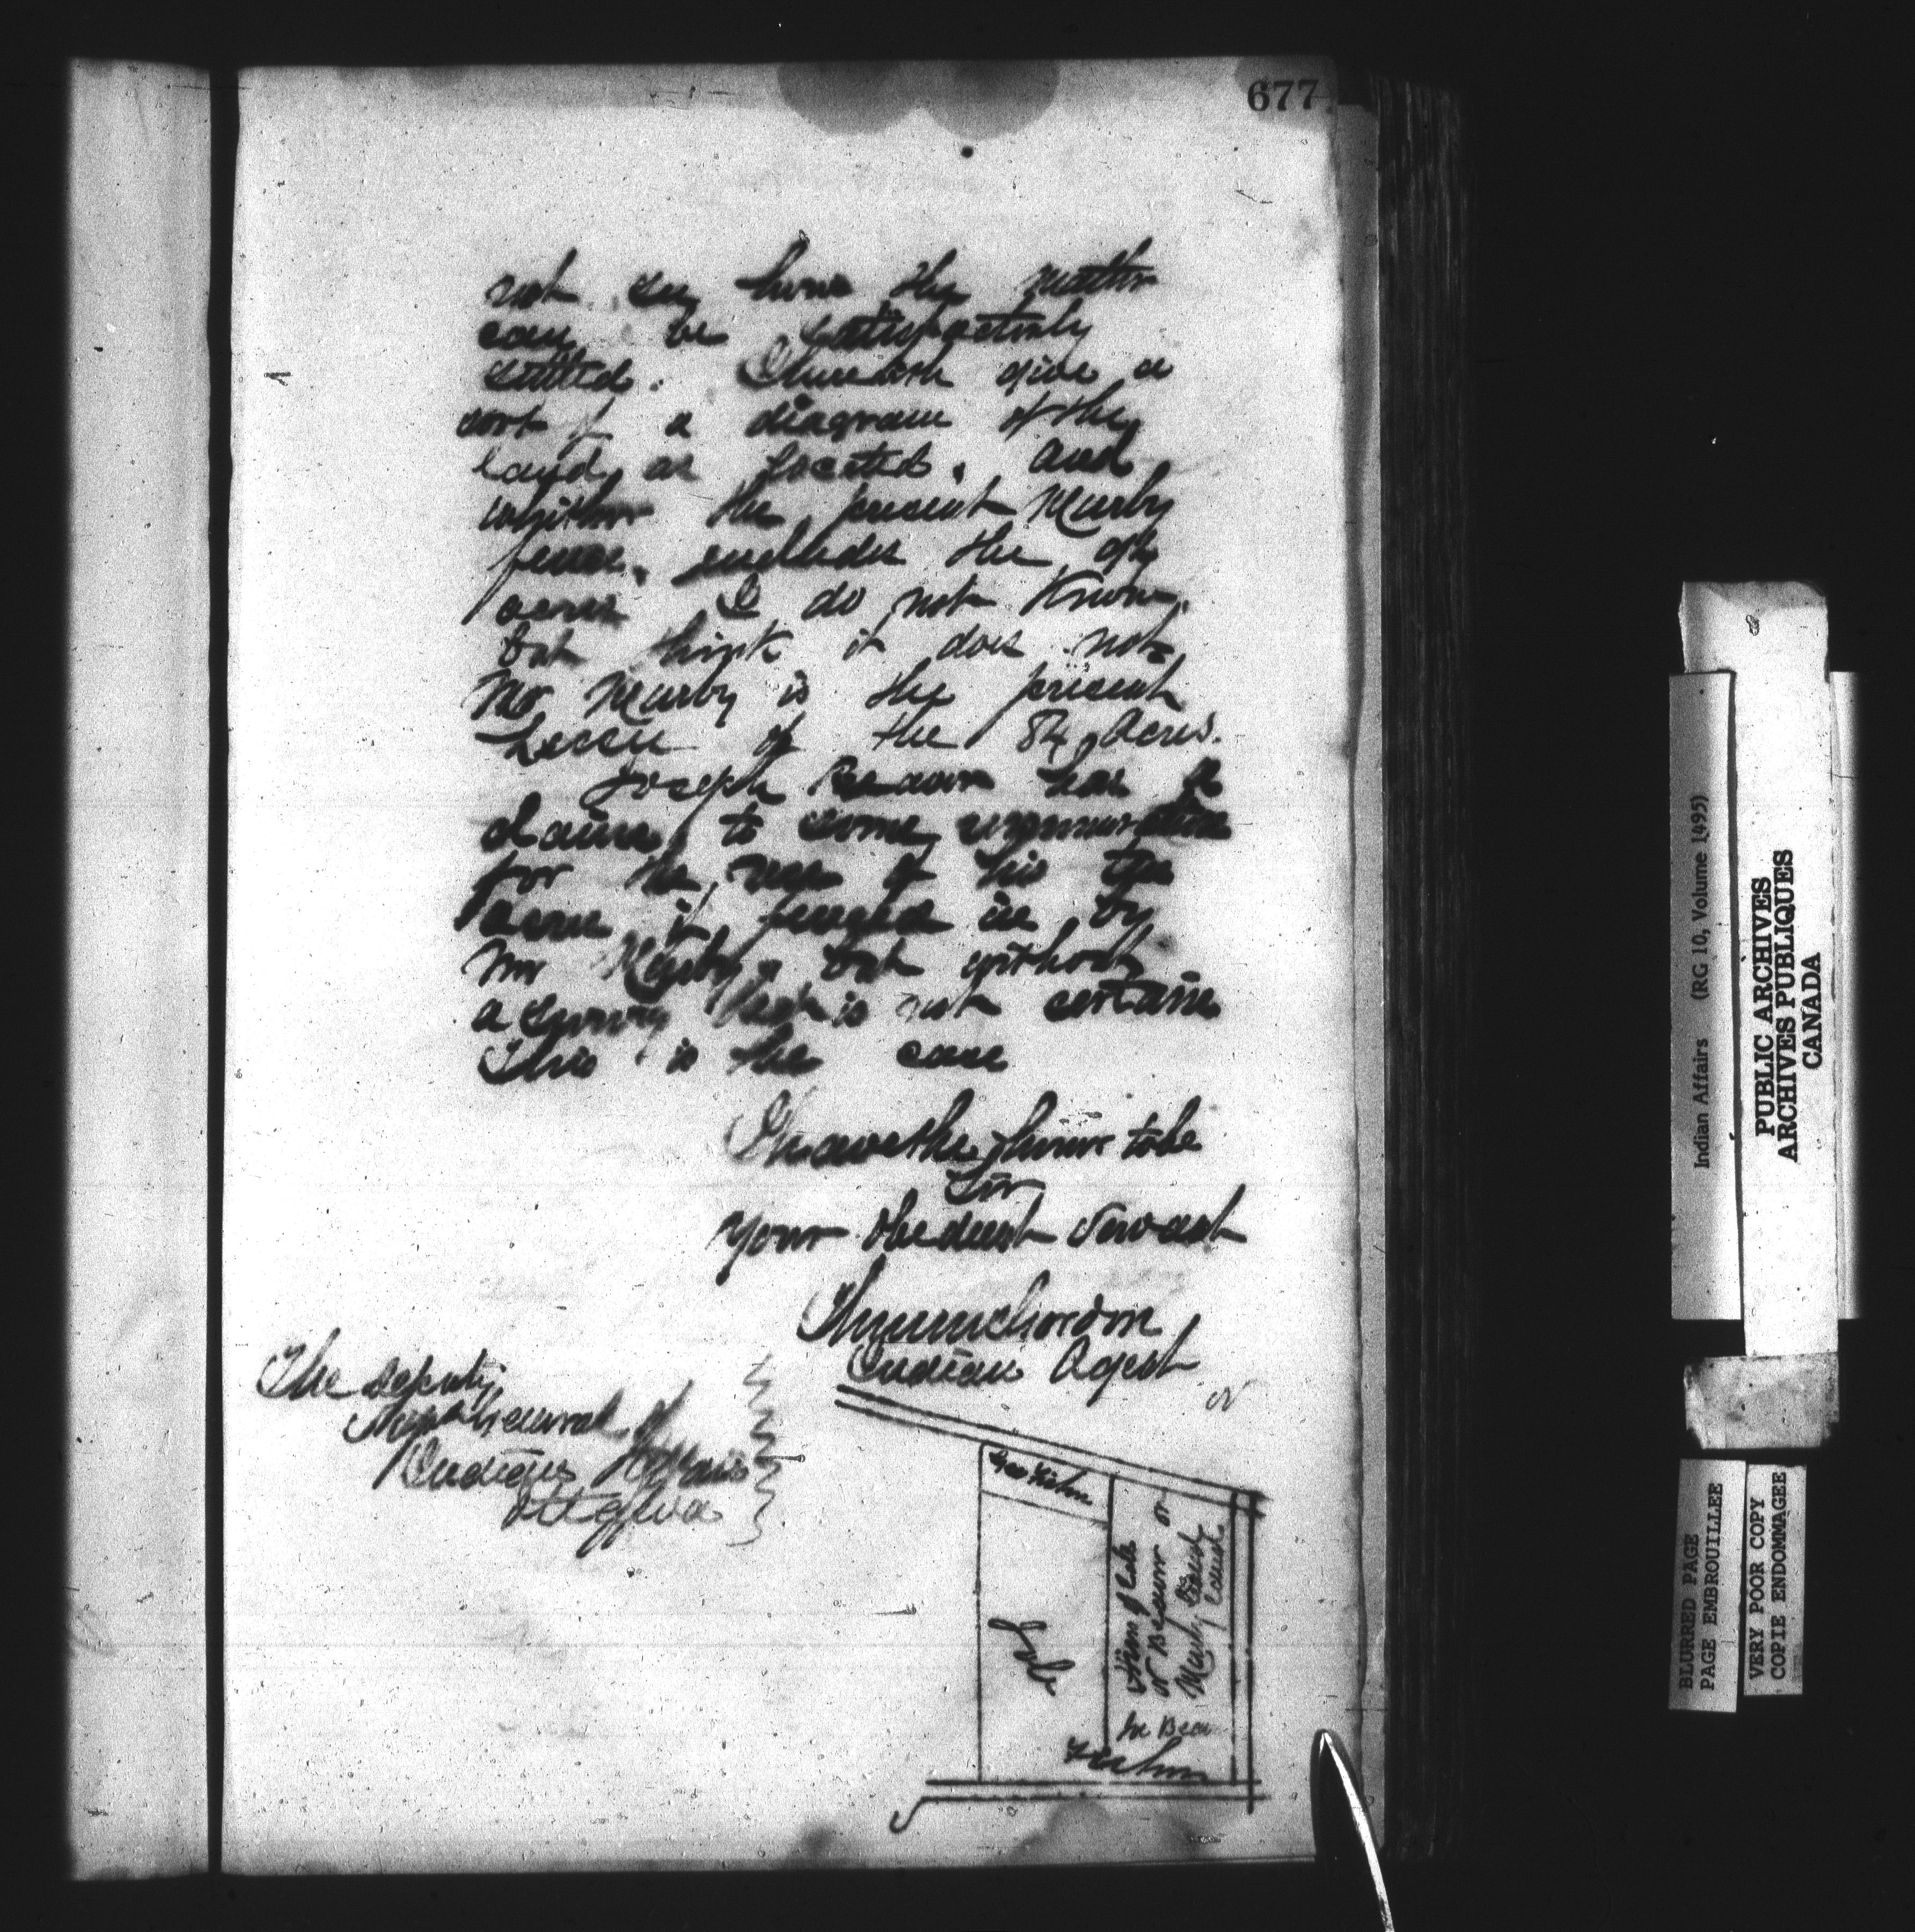 677
not see how the matter
can be satisfactorily
settled. I herewith give a
sort of a diagram of the
land as located. And
whither the present Nearby
fence, encludes the of
acres I do not Know,
but think it does not
Mr Nearby is the present
Lessee of the 84 Acres.
Joseph Beaver has a
claim to some renumeration
for the use of his
acres if fenced in by
Mr but without
a survey that is not certain
This is the case
I have the honor to be
Sir
Your Obedient Servant
Indian Agent
The Deputy
Supt General of
Indian Affairs
Ottawa
N
Geo
of late
Beaver or
Land
Land
S
Indian Affairs (RG 10, Volume 1495)
PUBLIC ARCHIVES
ARCHIVES PUBLIQUES
CANADA
BLURRED PAGE
PAGE EMBROUILLEE
VERY POOR COPY
COPIE ENDOMMAGEE